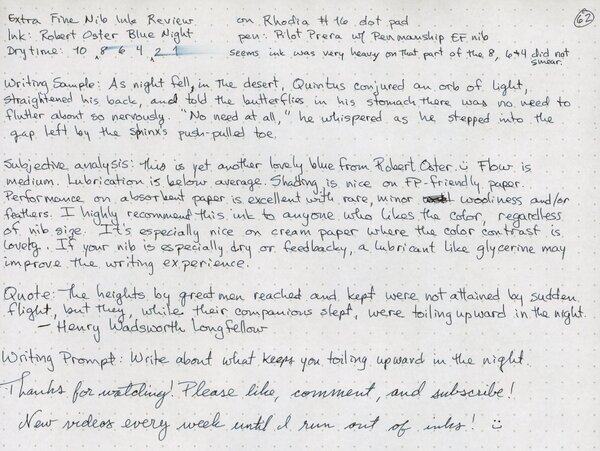 Extra Fine Nib Ink Review on Rhodia #16 dot pad 62
Ink: Robert Oster Blue Night pen: Pilot Prera w/ Penmanship EF nib
Dry time: 10 8 6 4 2 1 seems ink was very heavy on that part of the 8, 6 & 4 did not smear.
Writing Sample: As night fell, in the desert, Quintus conjured an orb of light,
straightened his back, and told the butterflies in his stomach there was no need to
flutter about so nervously. "No need at all," he whispered as he stepped into the
gap left by the sphinx's push-pulled toe.
Subjective analysis: This is yet another lovely blue from Robert Oster. Flow is
medium. Lubrication is below average. Shading is nice on FP-friendly paper.
Performance on absorbent paper is excellent with rare, minor wooliness and/or
feathers. I highly recommend this ink to anyone who likes the color, regardless
of nib size. It's especially nice on cream paper where the color contrast is
lovely. If your nib is especially dry or feedbacky, a lubricant like glycerine may
improve the writing experience.
Quote: The heights by great men reached and kept were not attained by sudden
flight, but they, while their companions slept, were toiling upward in the night.
— Henry Wadsworth Longfellow
Writing Prompt: Write about what keeps you toiling upward in the night.
Thanks for watching! Please like, comment, and subscribe!
New videos every week until I run out of inks! :)